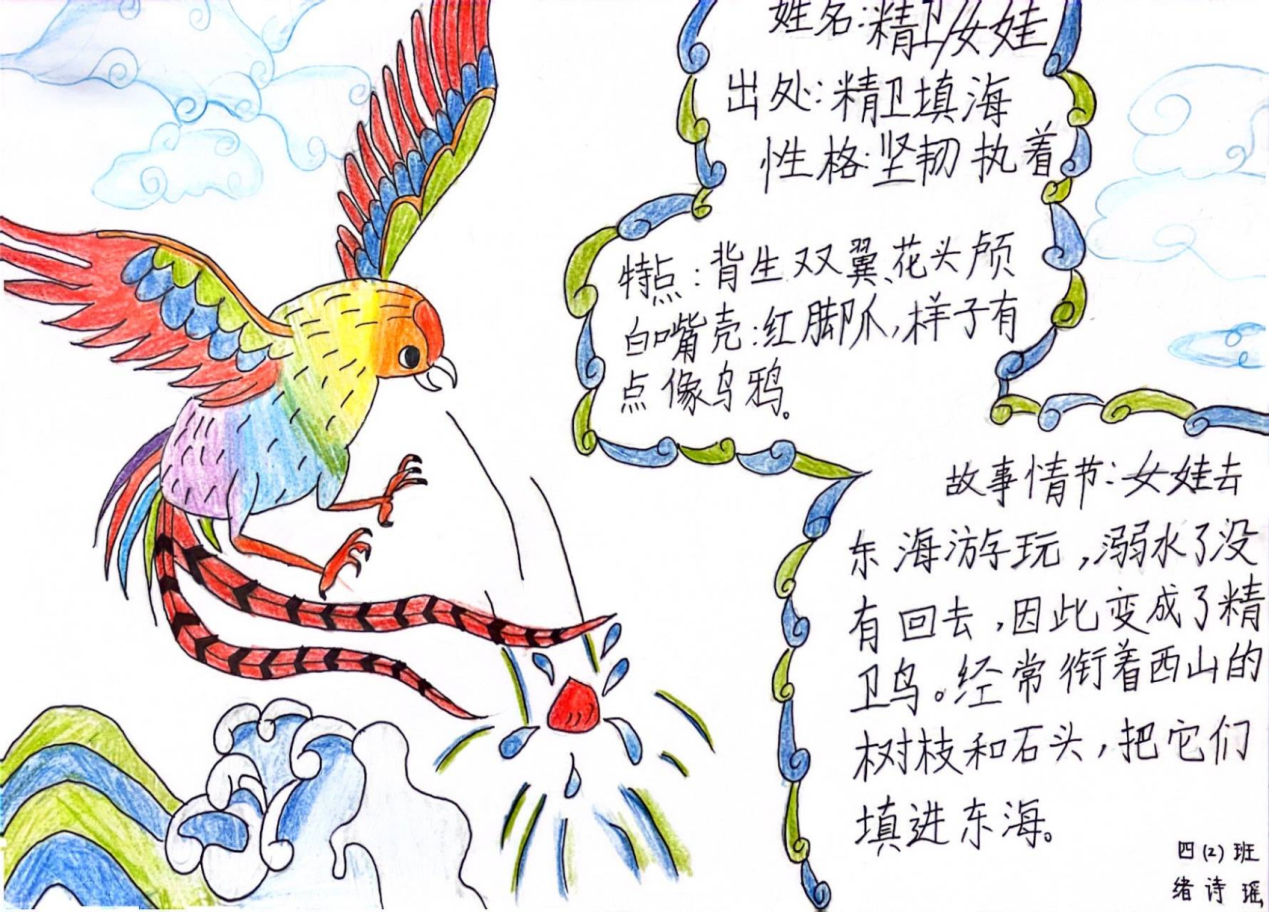 姓名:精卫/女娃
出处:精卫填海
性格:坚韧执着
特点:背生双翼、花头颅
白嘴壳:红脚爪,样子有
点像乌鸦。
故事情节:女娃去
东海游玩,溺水了没
有回去,因此变成了精
卫鸟。经常衔着西山的
树枝和石头,把它们
填进东海。
四(2)班
绪诗瑶